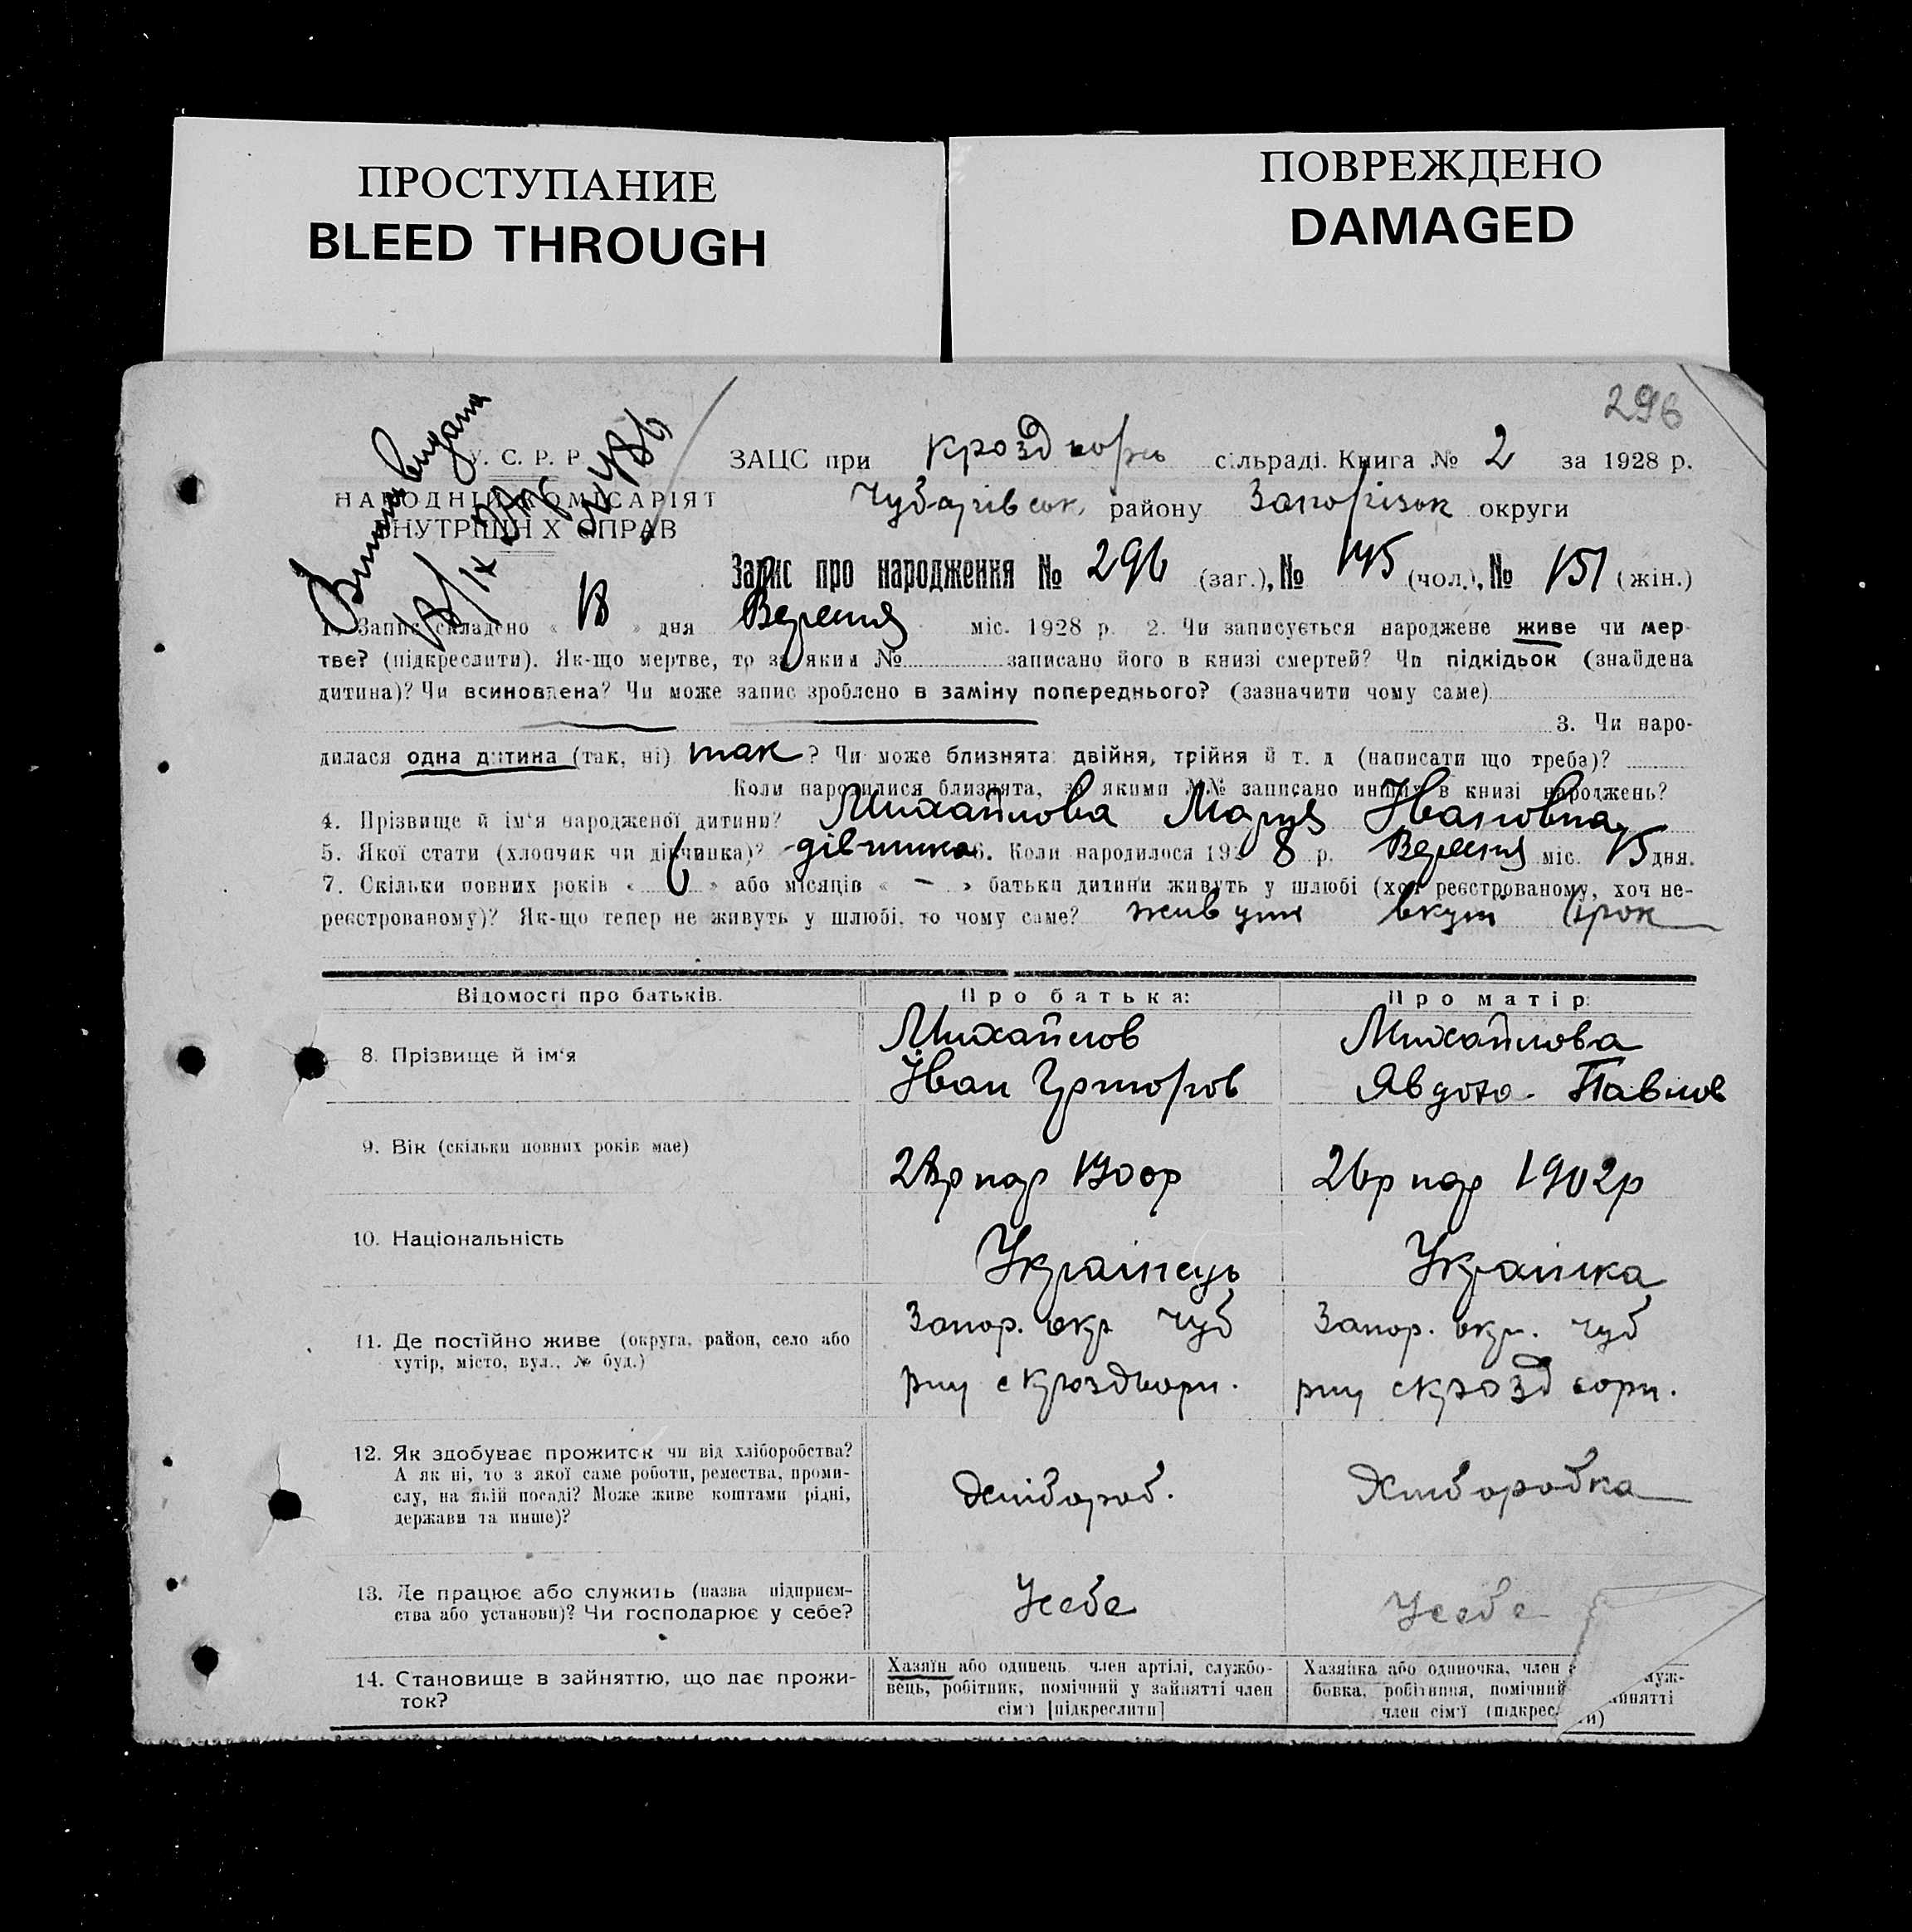 ПРОСТУПАНИЕ
BLEED THROUGH
ПОВРЕЖДЕНО
DAMAGED
296
Виписка видана
У. С. Р. Р.
НАРОДНІЙ КОМІСАРІЯТ
ВНУТРІШНІХ СПРАВ
ЗАЦС при сільраді. Книга № 2 за 1928 р.
Чубарівськ. району Запорізьк округи
Запис про народження № 296 (заг.), № 145 (чол.), № 151 (жін.)
1. Запис складено « 18 » дня Вересня міс. 1928 р. 2. Чи записується народжене живе чи мер-
тве? (підкреслити). Як-що мертве, то за яким № записано його в книзі смертей? Чи підкідьок (знайдена
дитина)? Чи всиновлена? Чи може запис зроблено в заміну попереднього? (зазначити чому саме)
3. Чи наро-
дилася одна дитина (так, ні) так ? Чи може близнята: двійня, трійня й т. д (написати що треба)?
Коли народилися близнята, за якими №№ записано инших в книзі народжень?
4. Прізвище й ім'я народженої дитини? Михайлова Марія Івановна
5. Якої стати (хлопчик чи дівчинка)? дівчинка 6. Коли народилося 1928 р. Вересня міс. 15 дня.
7. Скільки повних років « 6 » або місяців « — » батьки дитини живуть у шлюбі (хоч реєстрованому, хоч не-
реєстрованому)? Як-що тепер не живуть у шлюбі, то чому саме? живуть вкупі 6 рок
Відомості про батьків. Про батька: Про матір:
8. Прізвище й ім'я Михайлов Михайлова
Іван Явдоха Павлов
9. Вік (скільки повних років має) 28р нар 1900р 26р нар 1902р
10. Національність Українець Українка
11. Де постійно живе (округа, район, село або Запор. окр Чуб Запор. окр. Чуб
хутір, місто, вул., № буд.) рну с рну с
12. Як здобуває прожиток чи від хліборобства? Хлібороб. Хліборобка
А як ні, то з якої саме роботи, ремества, проми-
слу, на якій посаді? Може живе коштами рідні,
держави та инше)?
13. Де працює або служить (назва підприєм- Усебе Усебе
ства або установи)? Чи господарює у себе?
14. Становище в зайняттю, що дає прожи- Хазяїн або одинець член артілі, службо- Хазяйка або одиночка, член служ-
ток? вець, робітник, помічний у зайнятті член бовка, робітниця, помічний зайнятті
сім'ї [підкреслити] член сім'ї (підкрес- и)